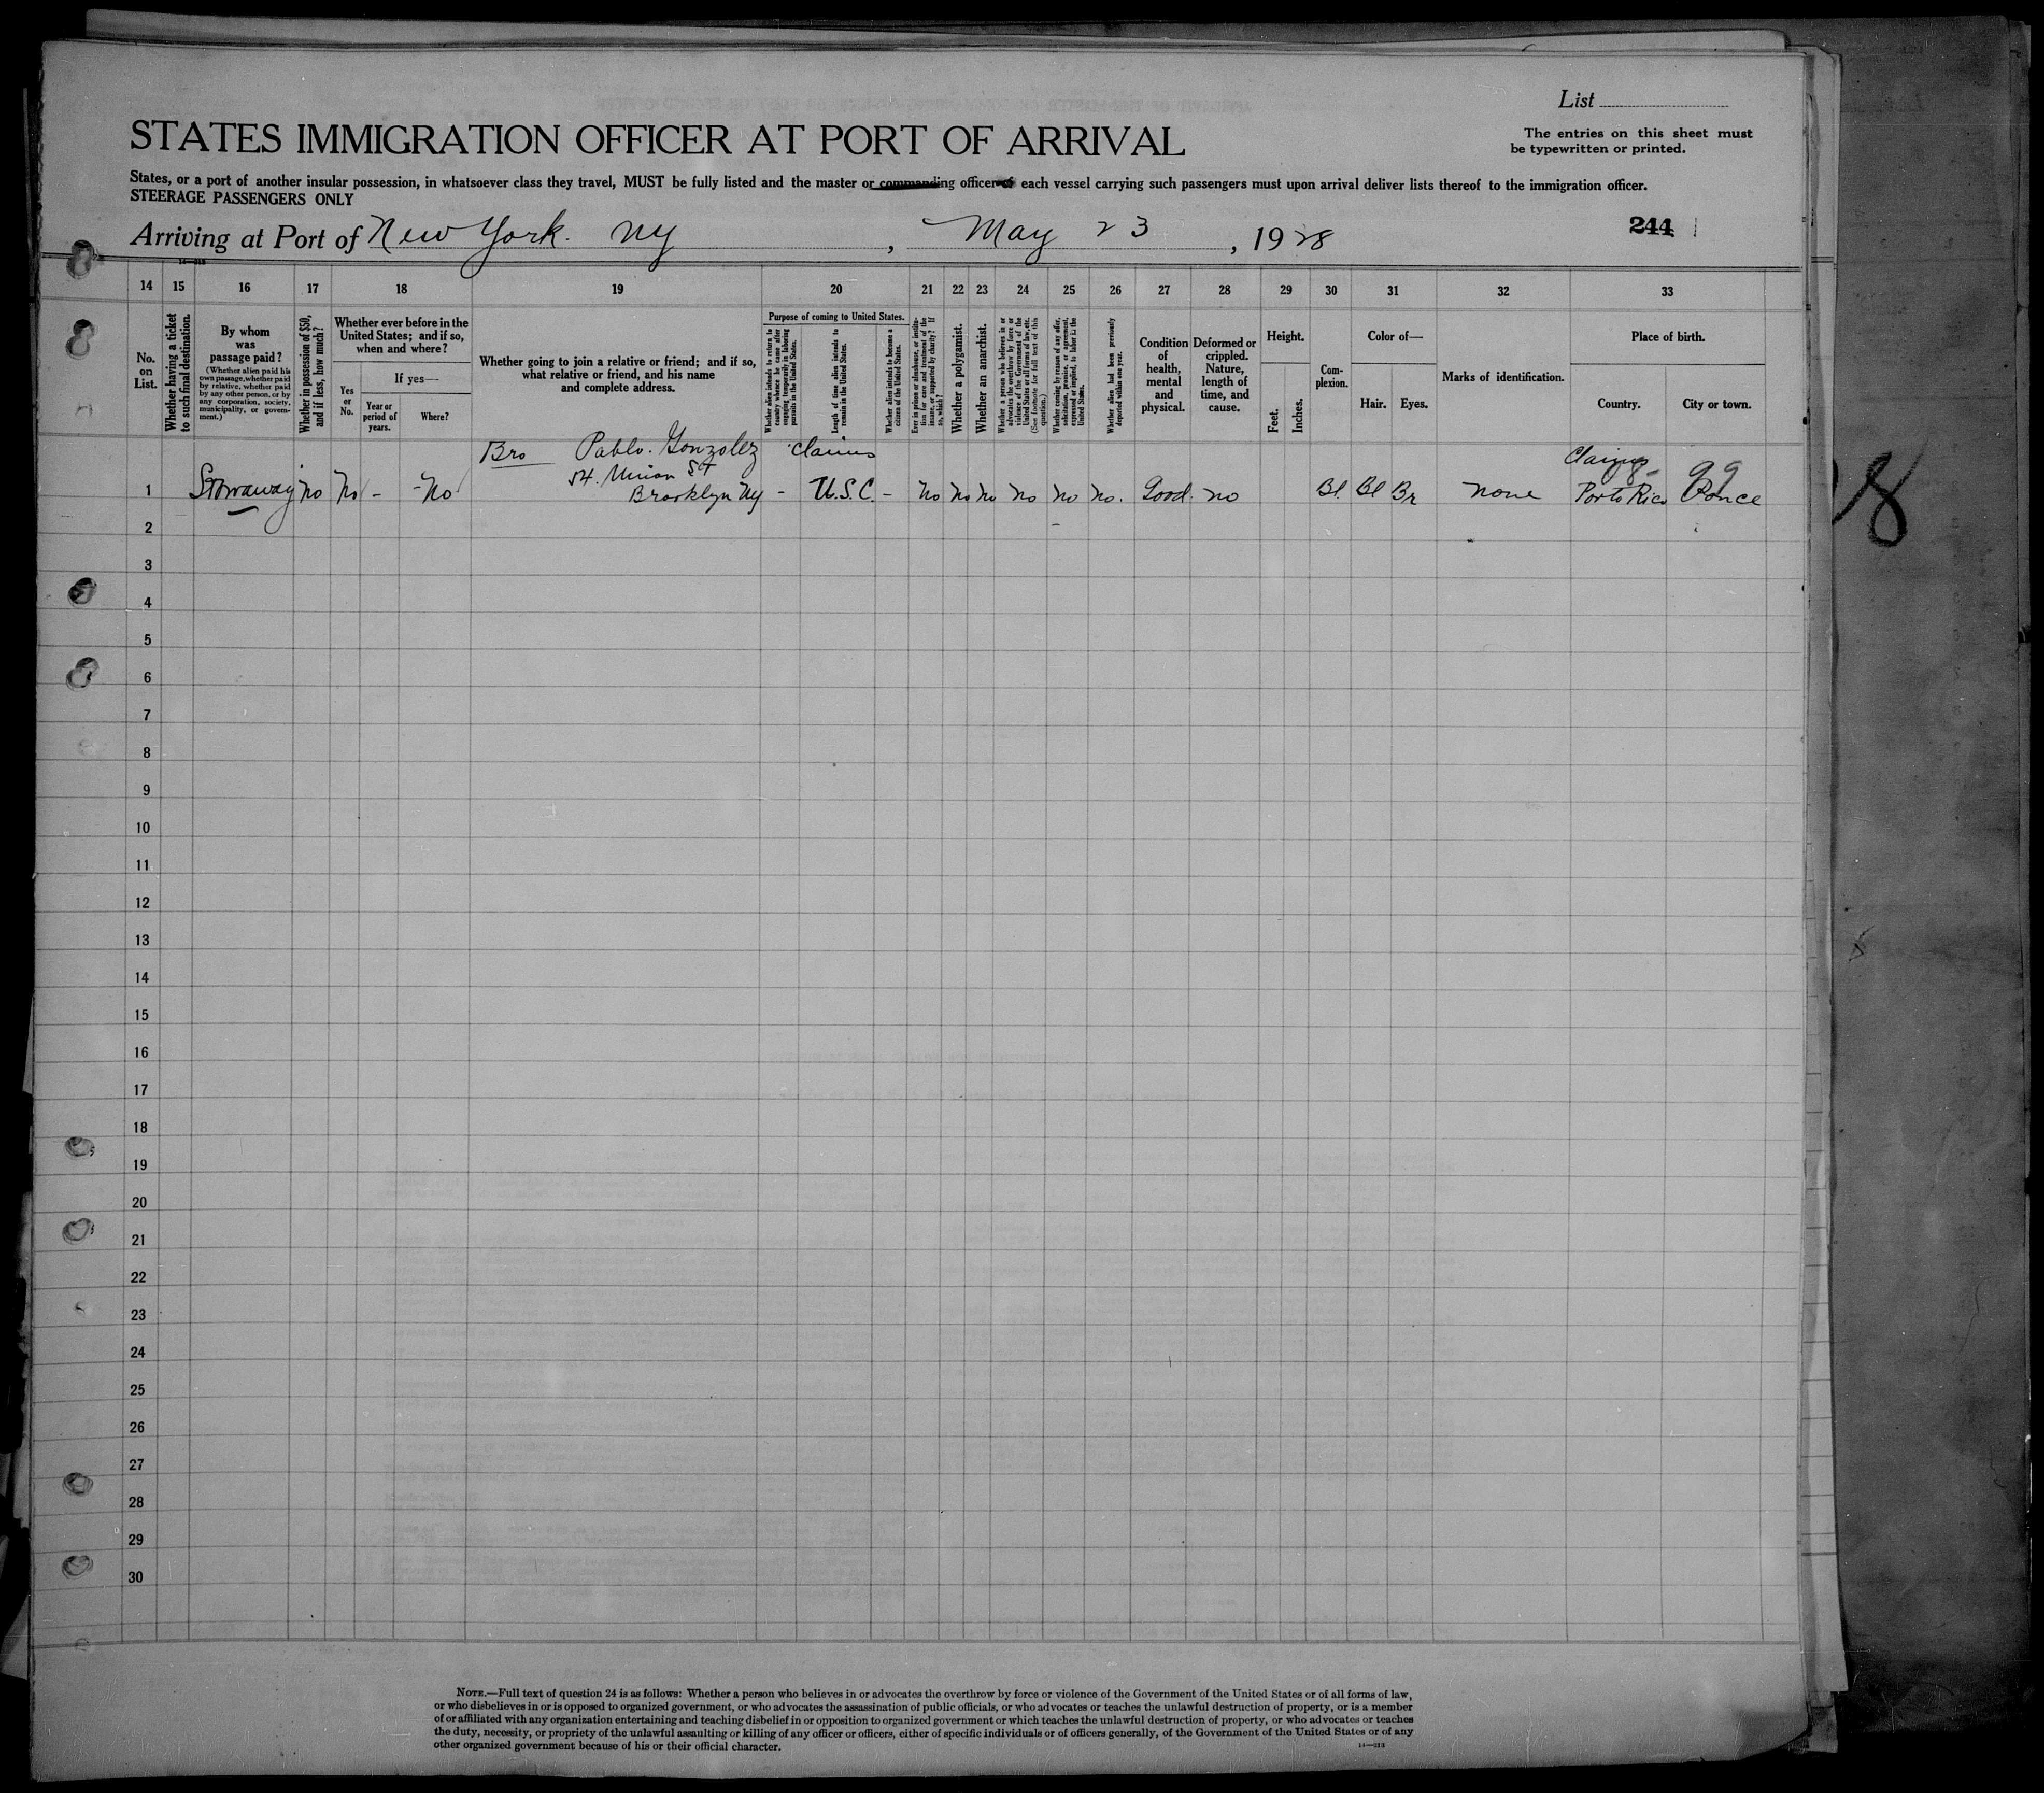 List
STATES IMMIGRATION OFFICER AT PORT OF ARRIVAL
The entries on this sheet must
be typewritten or printed.
States, or a port of another insular possession, in whatsoever class they travel, MUST be fully listed and the master or commanding officer of each vessel carrying such passengers must upon arrival deliver lists thereof to the immigration officer.
STEERAGE PASSENGERS ONLY
Arriving at Port of New York. NY, May 23, 1928
244
14 15 16 17 18 19 20 21 22 23 24 25 26 27 28 29 30 31 32 33
No.
on
List.
Whether having a ticket
to such final destination.
By whom
was
passage paid?
(Whether alien paid his
own passage, whether paid
by relative, whether paid
by any other person, or by
any corporation, society,
municipality, or govern-
ment.)
Whether in possession of $50,
and if less, how much?
Whether ever before in the
United States; and if so,
when and where?
Yes
or
No.
If yes—
Year or
period of
years.
Where?
Whether going to join a relative or friend; and if so,
what relative or friend, and his name
and complete address.
Purpose of coming to United States.
Whether alien intends to return to
country whence he came after
engaging temporarily in laboring
pursuits in the United States.
Length of time alien intends to
remain in the United States.
Whether alien intends to become a
citizen of the United States.
Ever in prison or almshouse, or institu-
tion for care and treatment of the
insane, or supported by charity? If
so, which?
Whether a polygamist.
Whether an anarchist.
Whether a person who believes in or
advocates the overthrow by force or
violence of the Government of the
United States or all forms of law, etc.
(See footnote for full text of this
question.)
Whether coming by reason of any offer,
solicitation, promise, or agreement,
expressed or implied, to labor in the
United States.
Whether alien had been previously
deported within one year.
Condition
of
health,
mental
and
physical.
Deformed or
crippled.
Nature,
length of
time, and
cause.
Height.
Feet.
Inches.
Com-
plexion.
Color of—
Hair. Eyes.
Marks of identification.
Place of birth.
Country. City or town.
Bro Pablo. Gonzolez claims Claims
54. Union St
1 Stowaway no No - - No Brooklyn Ny - U.S.C. - No No No No No No. Good. no Bl. Bl Br none Porto Rico Ponce
2
3
4
5
6
7
8
9
10
11
12
13
14
15
16
17
18
19
20
21
22
23
24
25
26
27
28
29
30
NOTE.—Full text of question 24 is as follows: Whether a person who believes in or advocates the overthrow by force or violence of the Government of the United States or of all forms of law,
or who disbelieves in or is opposed to organized government, or who advocates the assassination of public officials, or who advocates or teaches the unlawful destruction of property, or is a member
of or affiliated with any organization entertaining and teaching disbelief in or opposition to organized government or which teaches the unlawful destruction of property, or who advocates or teaches
the duty, necessity, or propriety of the unlawful assaulting or killing of any officer or officers, either of specific individuals or of officers generally, of the Government of the United States or of any
other organized government because of his or their official character.
14—213